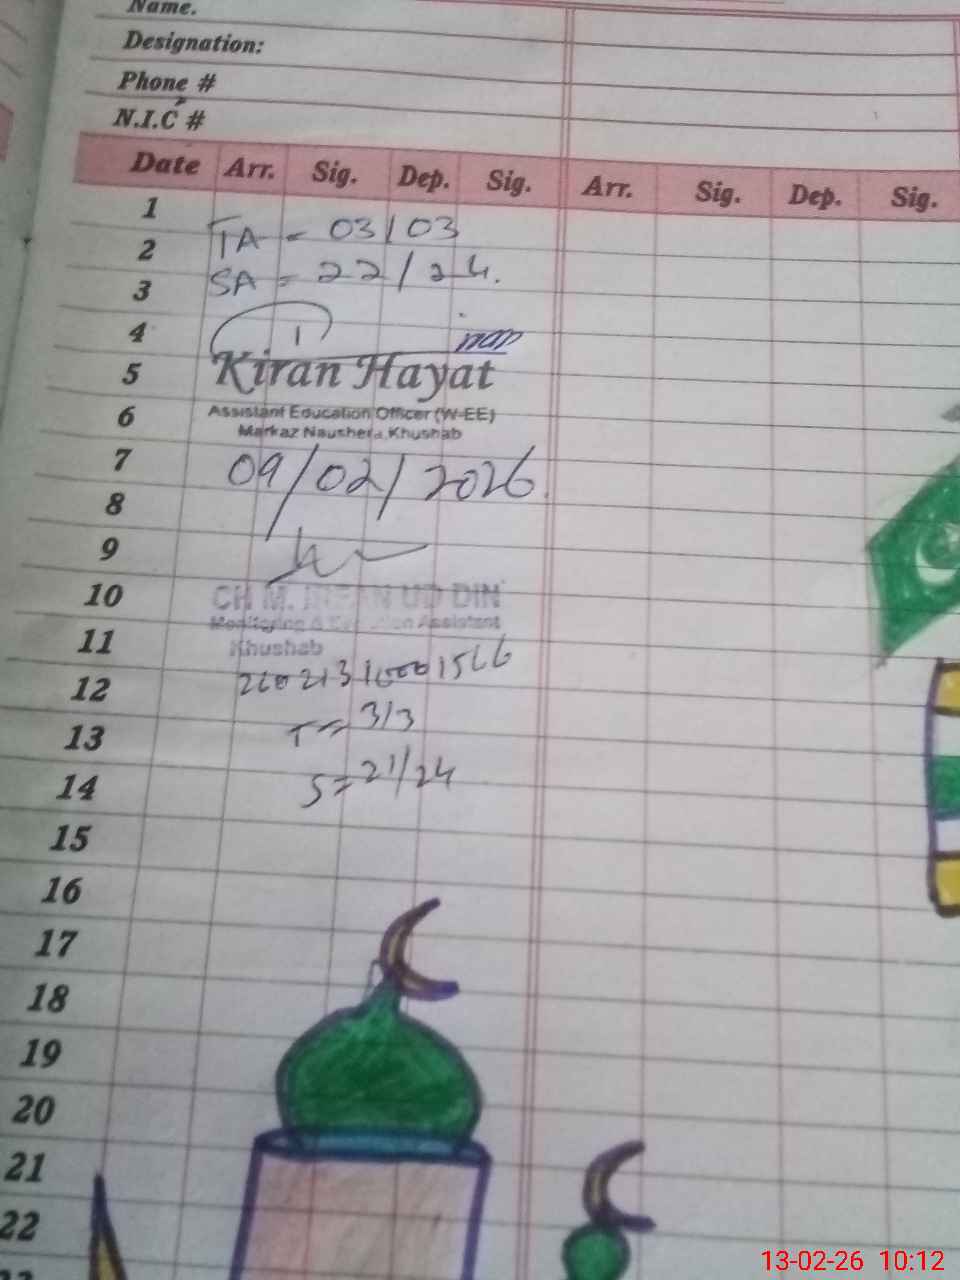 Name.
Designation:
Phone #
N.I.C #
Date Arr. Sig. Dep. Sig. Arr. Sig. Dep. Sig.
1
TA = 03/03
2
SA = 22/24.
3
4
5
Kiran Hayat
6
Assistant Education Officer (W-EE)
Markaz Naushera, Khushab
7
09/02/2026
8
9
10
CH M. IRFAN UD DIN
Monitoring & Evaluation Assistant
11
Khushab
12
13
T = 3/3
14
S = 21/24
15
16
17
18
19
20
21
22
13-02-26 10:12